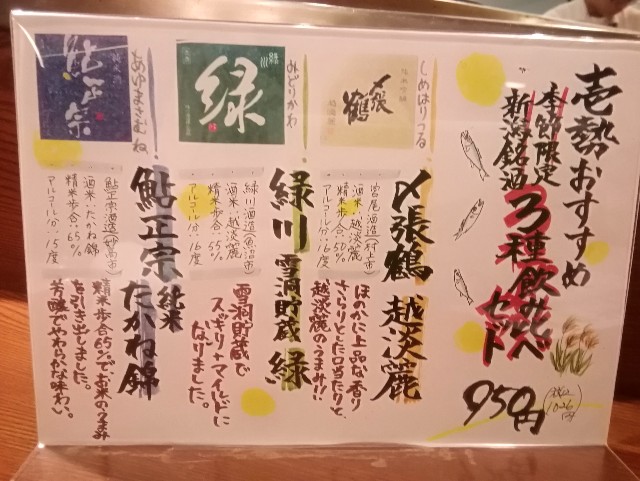 壱勢おすすめ
季節限定
新潟銘酒
3種飲みくらべ
セット
950円
(税込
1026
円)
〆張鶴
しめはりつる
〆張鶴 越淡麗
宮尾酒造(村上市)
酒米:越淡麗
精米歩合:50%
アルコール分:16度
ほのかに上品な香り
さらりとした口当たりと、
越淡麗のうまみ!!
緑
みどりかわ
緑川 雪洞貯蔵 緑
緑川酒造(魚沼市)
酒米:越淡麗
精米歩合:55%
アルコール分:16度
雪洞貯蔵で
スッキリ+マイルドに
なりました。
鮎正宗
あゆまさむね
鮎正宗 純米
たかね錦
鮎正宗酒造(妙高市)
酒米:たかね錦
精米歩合:65%
アルコール分:15度
精米歩合65%でお米のうまみ
を引き出しました。
芳醇でやわらかな味わい。